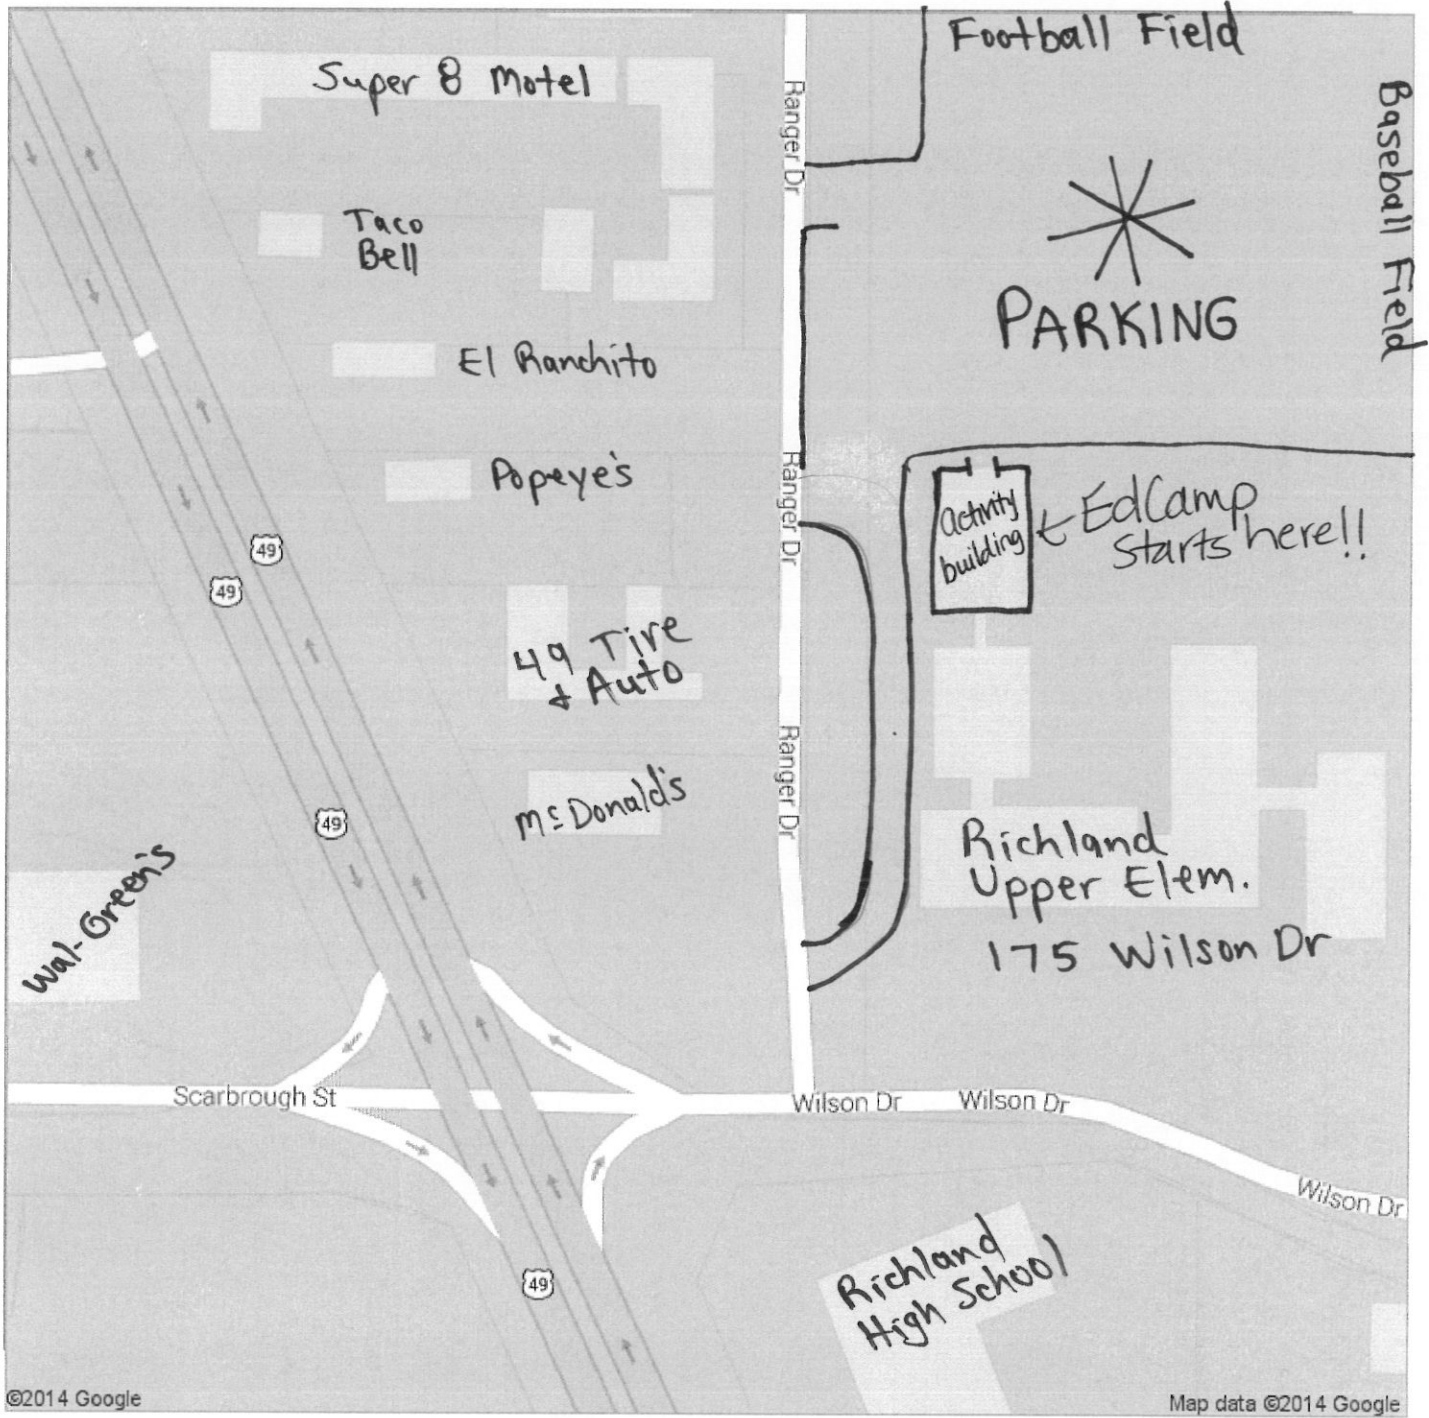 Football Field
Super 8 Motel
Ranger Dr
Baseball Field
Taco
Bell
PARKING
El Ranchito
Popeye's
Ranger Dr
activity
building
EdCamp
starts here!!
49
49
49 Tire
& Auto
Ranger Dr
McDonald's
49
Wal-Green's
Richland
Upper Elem.
175 Wilson Dr
Scarbrough St
Wilson Dr
Wilson Dr
Wilson Dr
Richland
High School
49
©2014 Google
Map data ©2014 Google